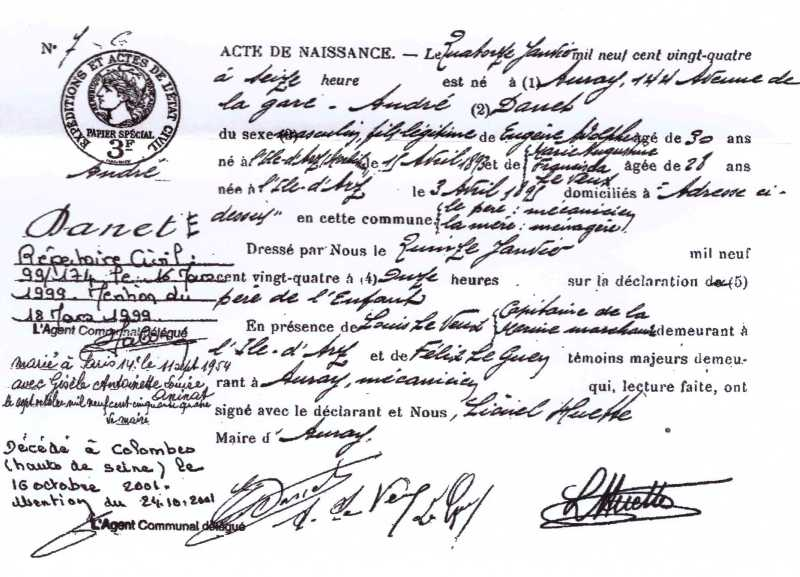 N° 7
EXPÉDITIONS ET ACTES DE L'ÉTAT CIVIL
PAPIER SPÉCIAL
3F
ACTE DE NAISSANCE. — Le Quatorze Janvier mil neuf cent vingt-quatre
à seize heure est né à (1) Auray, 144 Avenue de
la gare - André (2) Danet
du sexe masculin, fils légitime de Eugène âgé de 30 ans
né à l'Ile-d'Arz le 15 Avril 1893 et de Marie Augustine
Le Veux âgée de 28 ans
née à l'Ile-d'Arz le 3 Avril 1895 domiciliés à "Adresse ci-
dessus" en cette commune le père : mécanicien
la mère : ménagère
Dressé par Nous le Quinze Janvier mil neuf
cent vingt-quatre à (4) Onze heures sur la déclaration de (5)
père de l'Enfant
En présence de Louis Le Veux Capitaine de la
Marine marchande demeurant à
l'Ile-d'Arz et de Félix Le Guey témoins majeurs demeu-
rant à Auray, mécanicien qui, lecture faite, ont
signé avec le déclarant et Nous, Lionel Huette
Maire d'Auray.
André
Danet
Répertoire Civil :
99/174 le 16 Mars
1999. Mention du
18 Mars 1999.
L'Agent Communal délégué
marié à Paris 14e le 11 sept 1954
avec Gisèle Antoinette Aninat
le sept octobre mil neuf cent cinquante quatre
le maire
Décédé à Colombes
(hauts de seine) le
16 octobre 2001.
Mention du 24.10.2001
L'Agent Communal délégué
Danet
Le Veux
L Huette